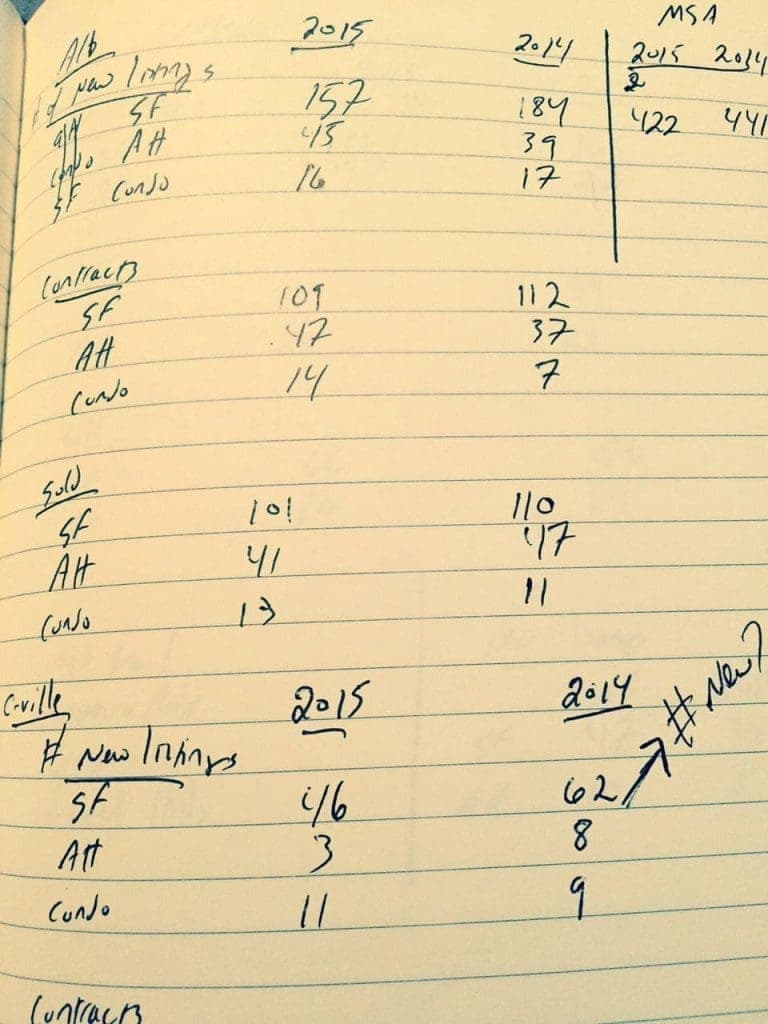 MSA
Alb 2015 2014 2015 2014
# of New listings
SF 157 184 422 441
att AH 45 39
condo
SF Condo 16 17
Contracts
SF 109 112
AH 47 37
Condo 14 7
Sold
SF 101 110
AH 41 47
Condo 13 11
C-ville 2015 2014 # New?
# New listings
SF 46 62
AH 3 8
Condo 11 9
Contracts